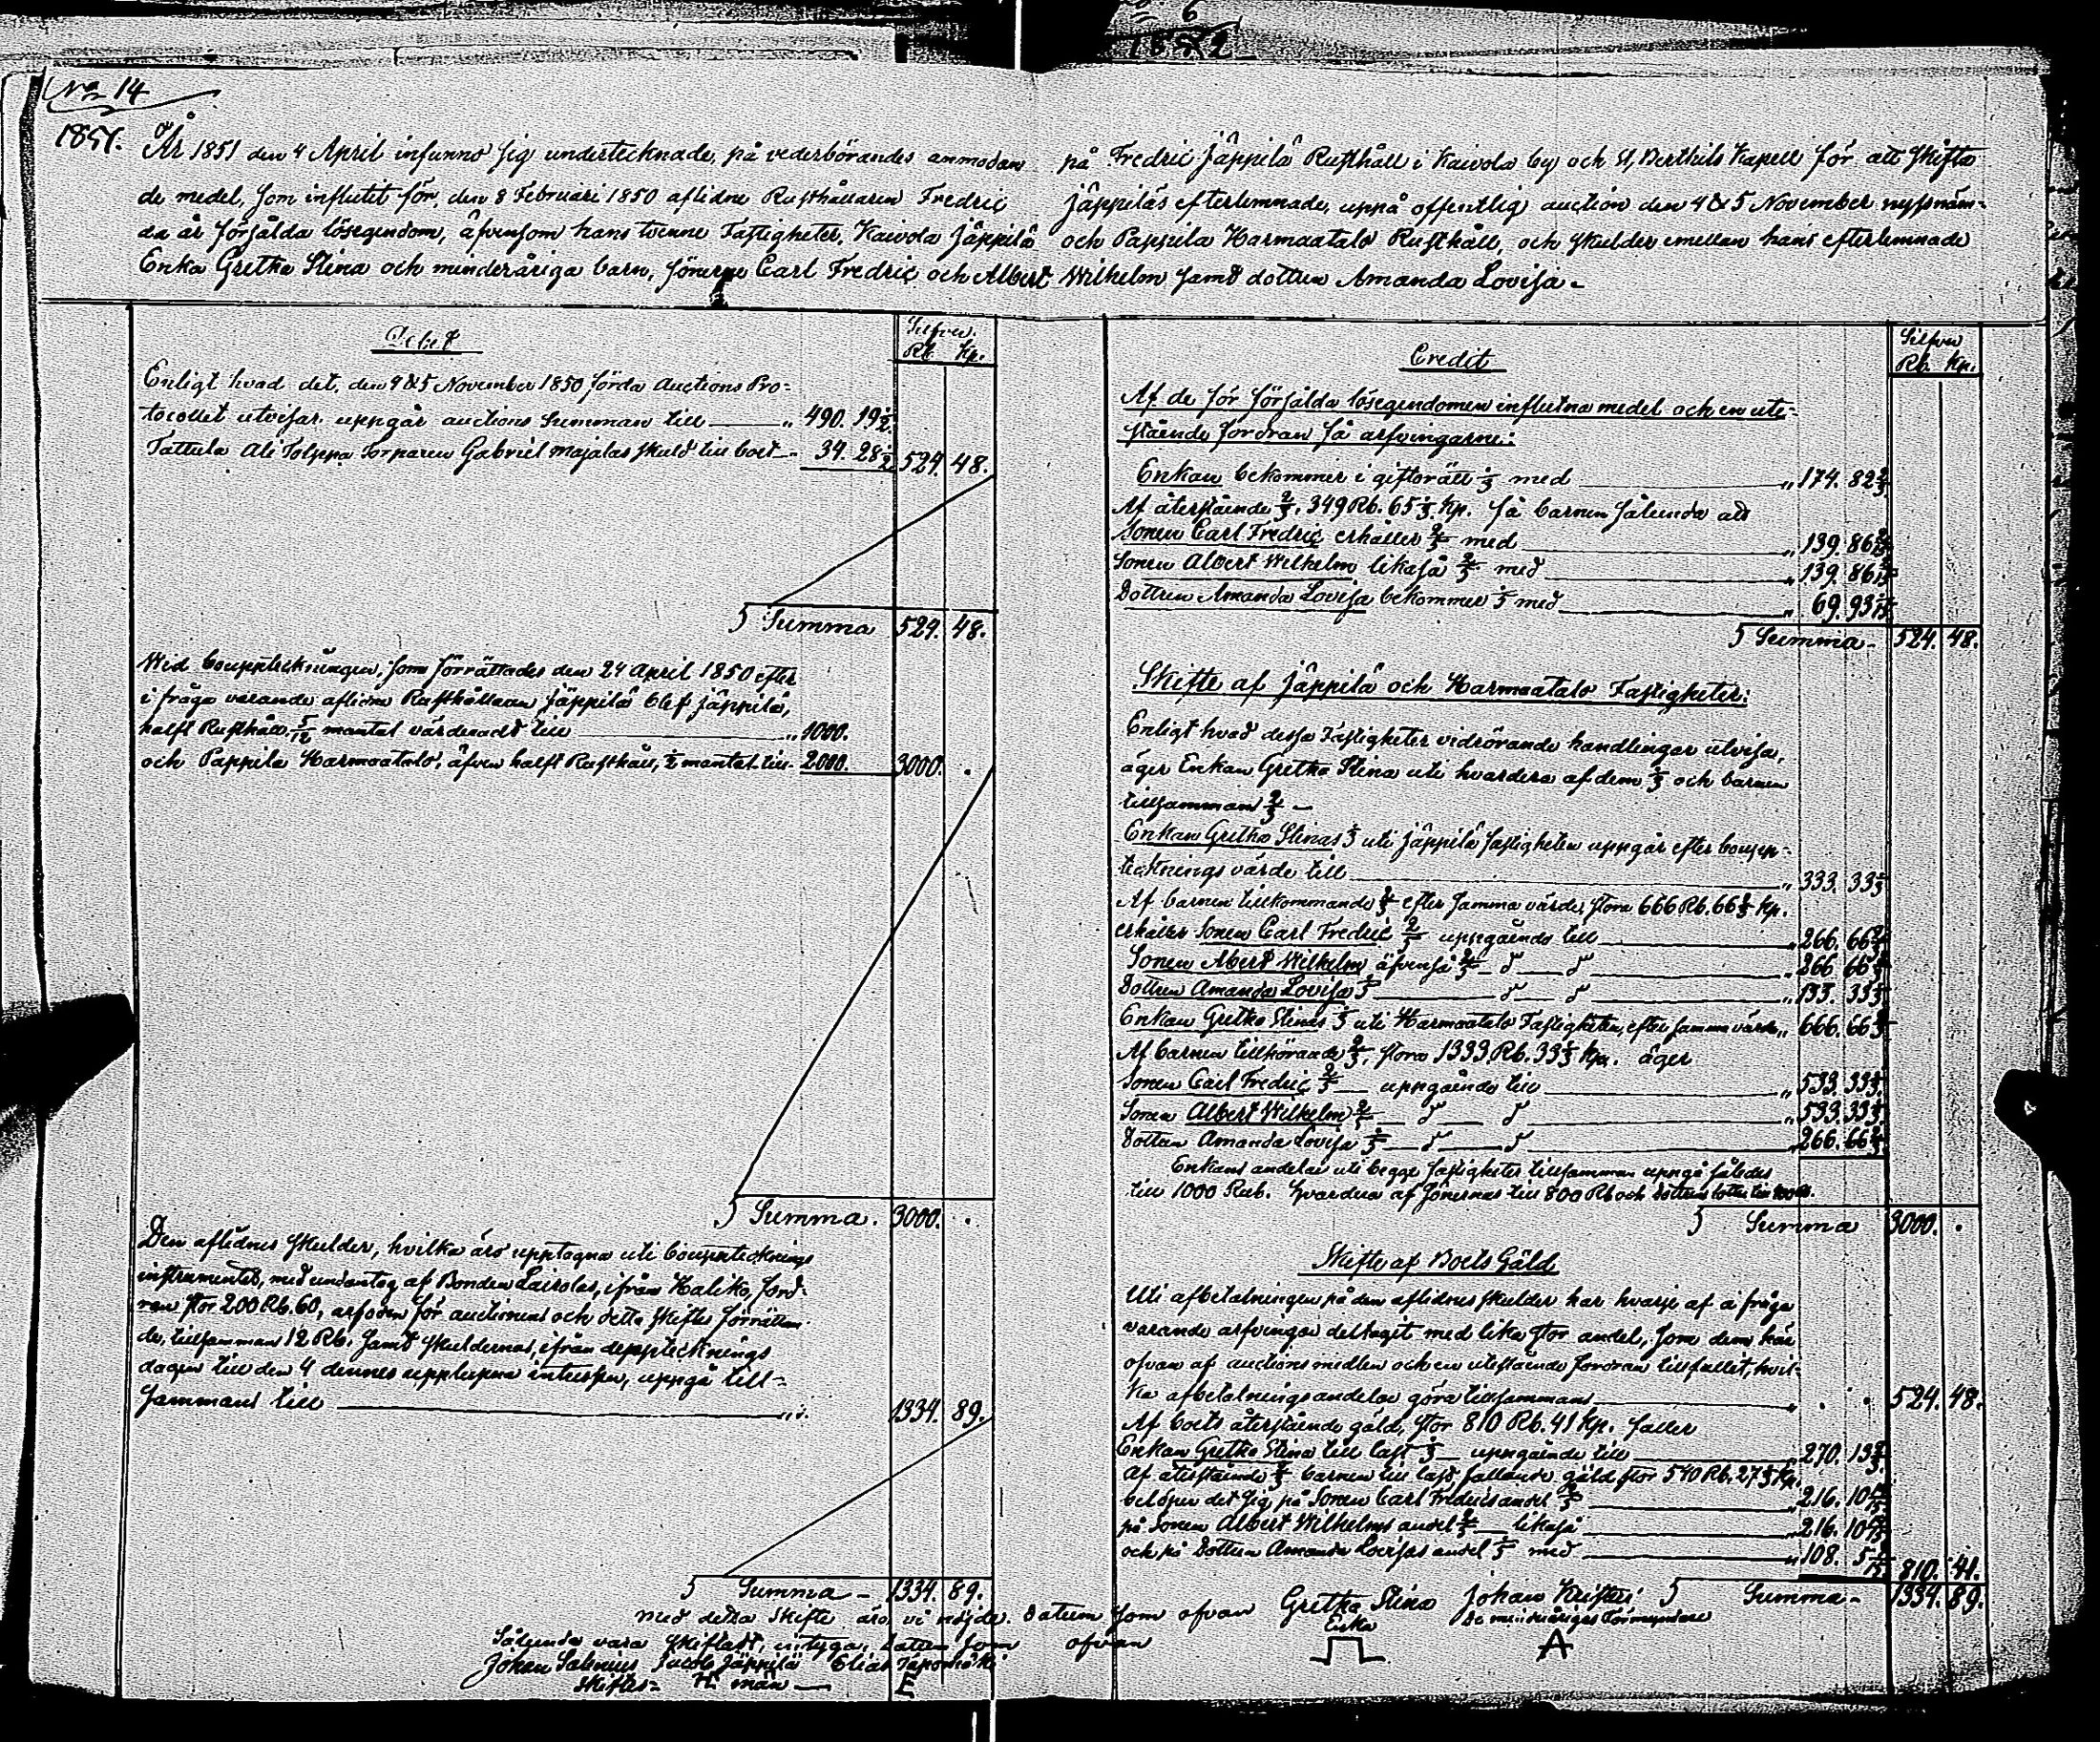 6
1852
No 14
1851. År 1851 den 4 April infunno sig undertecknade, på vederbörandes anmodan på Fredric Jäppilä Rusthåll i Kaivola by och St. Berthils Kapell för att skifta
de medel, som influtit för, den 8 Februari 1850 aflidne Rusthållaren Fredric Jäppiläs efterlemnade, uppå offentlig auction den 4 & 5 November nyssnäm-
da år försålda lösegendom, äfvensom hans tvenne Fastigheter, Kaivola Jäppilä och Pappila Harmaatalo Rusthåll, och skulder emellan hans efterlemnade
Enka Gretha Stina och minderåriga barn, sönerne Carl Fredric och Albert Wilhelm samt dottren Amanda Lovisa.
Debet
Silfver.
Rb. Kp.
Enligt hvad det, den 4 & 5 November 1850 förda Auctions Pro-
tocollet utvisar uppgår auctions Summan till „ 490. 19 1/2
Tattula Ali Tolppa Torparen Gabriel Majalas skuld till boet „ 34. 28 1/2 524. 48.
Summa 524. 48.
Wid bouppteckningen, som förrättades den 24 April 1850 efter
i fråga varande aflidne Rusthållaren Jäppilä blef Jäppilä,
halft Rusthåll, 5/12 mantal värderadt till „ 1000.
och Pappila Harmaatalo, äfven halft Rusthåll, 1/2 mantal till 2000. 3000. .
Summa. 3000. .
Den aflidnes skulder, hvilka äro upptagna uti boupptecknings
instrumentet, med undantag af Bonden Lairolas, ifrån Haliko, ford-
ran stor 200 Rb. 60, arfoden för auctionens och detta skiftes förrättan-
de, tillsamman 12 Rb. samt skuldernas, ifrån uppteckningsdagen
dagen till den 4 dennes upplupna intressen, uppgå till-
sammans till 1334. 89.
Summa 1334. 89.
Credit
Silfver
Rb. Kp.
Af de för försålda lösegendomen influtna medel och en ute-
stående fordran få arfvingarne:
Enkan bekommer i giftorätt 1/3 med „ 174. 82 2/3
Af återstående 2/3, 349 Rb. 65 1/3 Kp. få barnen sålunda att
Sonen Carl Fredric erhåller 2/5 med „ 139. 86 2/15
Sonen Albert Wilhelm likaså 2/5 med „ 139. 86 2/15
Dottren Amanda Lovisa bekommer 1/5 med „ 69. 93 1/15
Summa 524. 48.
Skifte af Jäppilä och Harmaatalo Fastigheter:
Enligt hvad dessa Fastigheter vidrörande handlingar utvisa,
äger Enkan Gretha Stina uti hvardera af dem 1/3 och barnen
tillsamman 2/3 —
Enkan Gretha Stinas 1/3 uti Jäppilä fastigheten uppgår efter boupp-
tecknings värde till „ 333. 33 1/3
Af barnen tillkommande 2/3 efter samma värde, stora 666 Rb. 66 2/3 Kp.
erhåller Sonen Carl Fredric 2/5 uppgående till „ 266. 66 2/3
Sonen Abert Wilhelm äfvenså 2/5 d d „ 266. 66 2/3
Dottren Amanda Lovisa 1/5 d d „ 133. 33 1/3
Enkan Gretha Stinas 1/3 uti Harmaatalo Fastigheten, efter samma värde „ 666. 66 2/3
Af barnen tillhörande 2/3, stora 1333 Rb. 33 1/3 Kp. äger
Sonen Carl Fredric 2/5 uppgående till „ 533. 33 1/3
Sonen Albert Wilhelm 2/5 d d „ 533. 33 1/3
Dottren Amanda Lovisa 1/5 d d „ 266. 66 2/3
Enkans andelar uti begge fastigheter tillsamman uppgå således
till 1000 Rub. hvardera af sönernas till 800 Rb och dottrens lott till 400 Rb.
Summa 3000. .
Skifte af Boets Gäld
Uti afbetalningen på den aflidnes skulder har hvarje af i fråga
varande arfvingar deltagit med lika stor andel, som dem här
ofvan af auctionsmedlen och en utestående fordran tillfallit, hvil-
ka afbetalningsandelar göra tillsammans „ . . 524. 48.
Af boets återstående gäld, stor 810 Rb. 41 Kp. faller
Enkan Gretha Stina till last 1/3 uppgående till 270. 13 2/3
Af återstående 2/3 barnen till last fallande gäld, stor 540 Rb. 27 1/3 Kp.
belöper det sig på Sonen Carl Fredrics andel 2/5 „ 216. 10 14/15
på Sonen Albert Wilhelms andel 2/5 likaså „ 216. 10 14/15
och på Dottren Amanda Lovisas andel 1/5 med „ 108. 5 7/15 810. 41.
Summa 1334. 89.
Med detta skifte äro vi nöjda. Datum som ofvan Gretha Stina Johan
Enka De minderårigas Förmyndare
A
Sålunda vara skiftadt, intyga, datum som ofvan
Johan Salenius Jacob Jäppilä Elias
Skiftes- män E